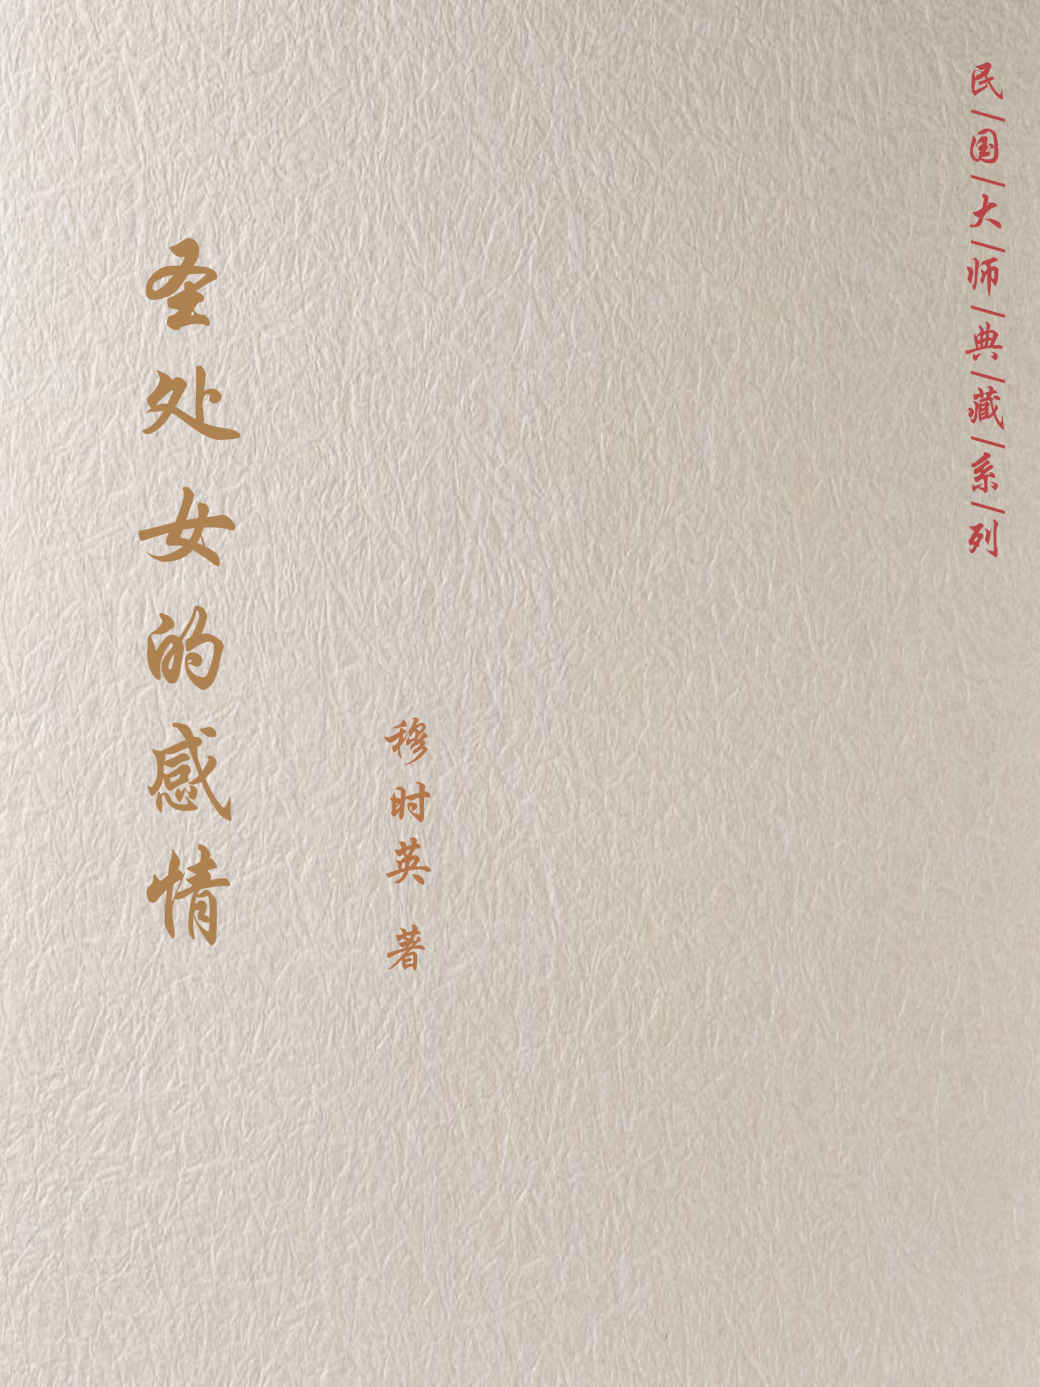 民/国/大/师/典/藏/系/列
圣处女的感情
穆时英 著